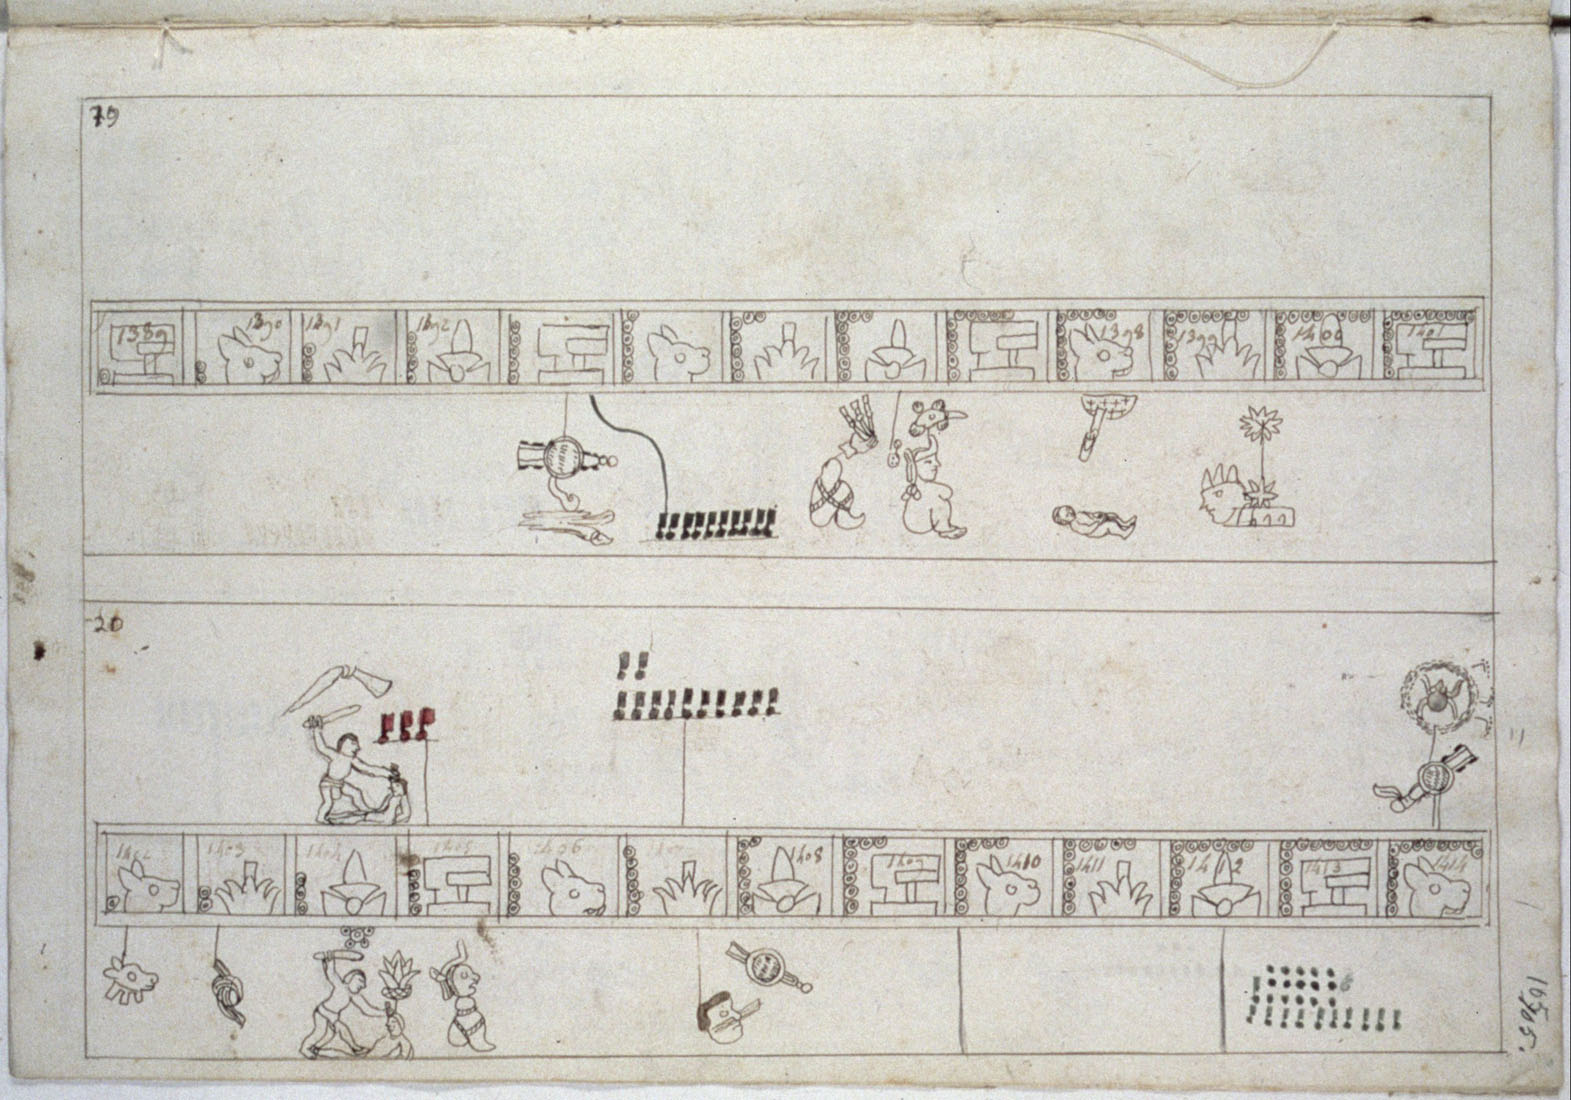 19
1389 1390 1391 1392 1398 1399 1400 1401
20
1402 1403 1404 1405 1406 1407 1408 1409 1410 1411 1412 1413 1414